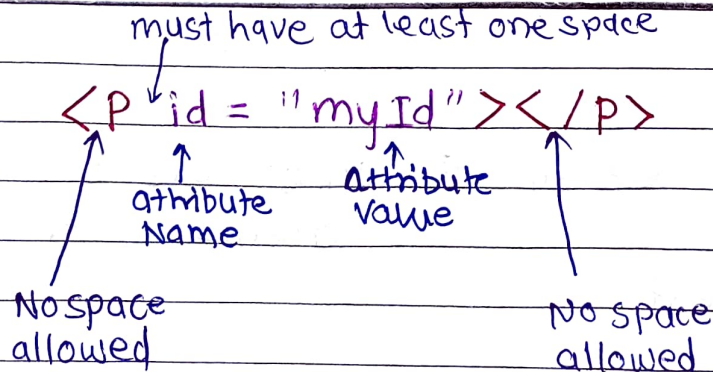 must have at least one space
<p id = "myId"></p>
attribute
Name
attribute
value
No space
allowed
No space
allowed